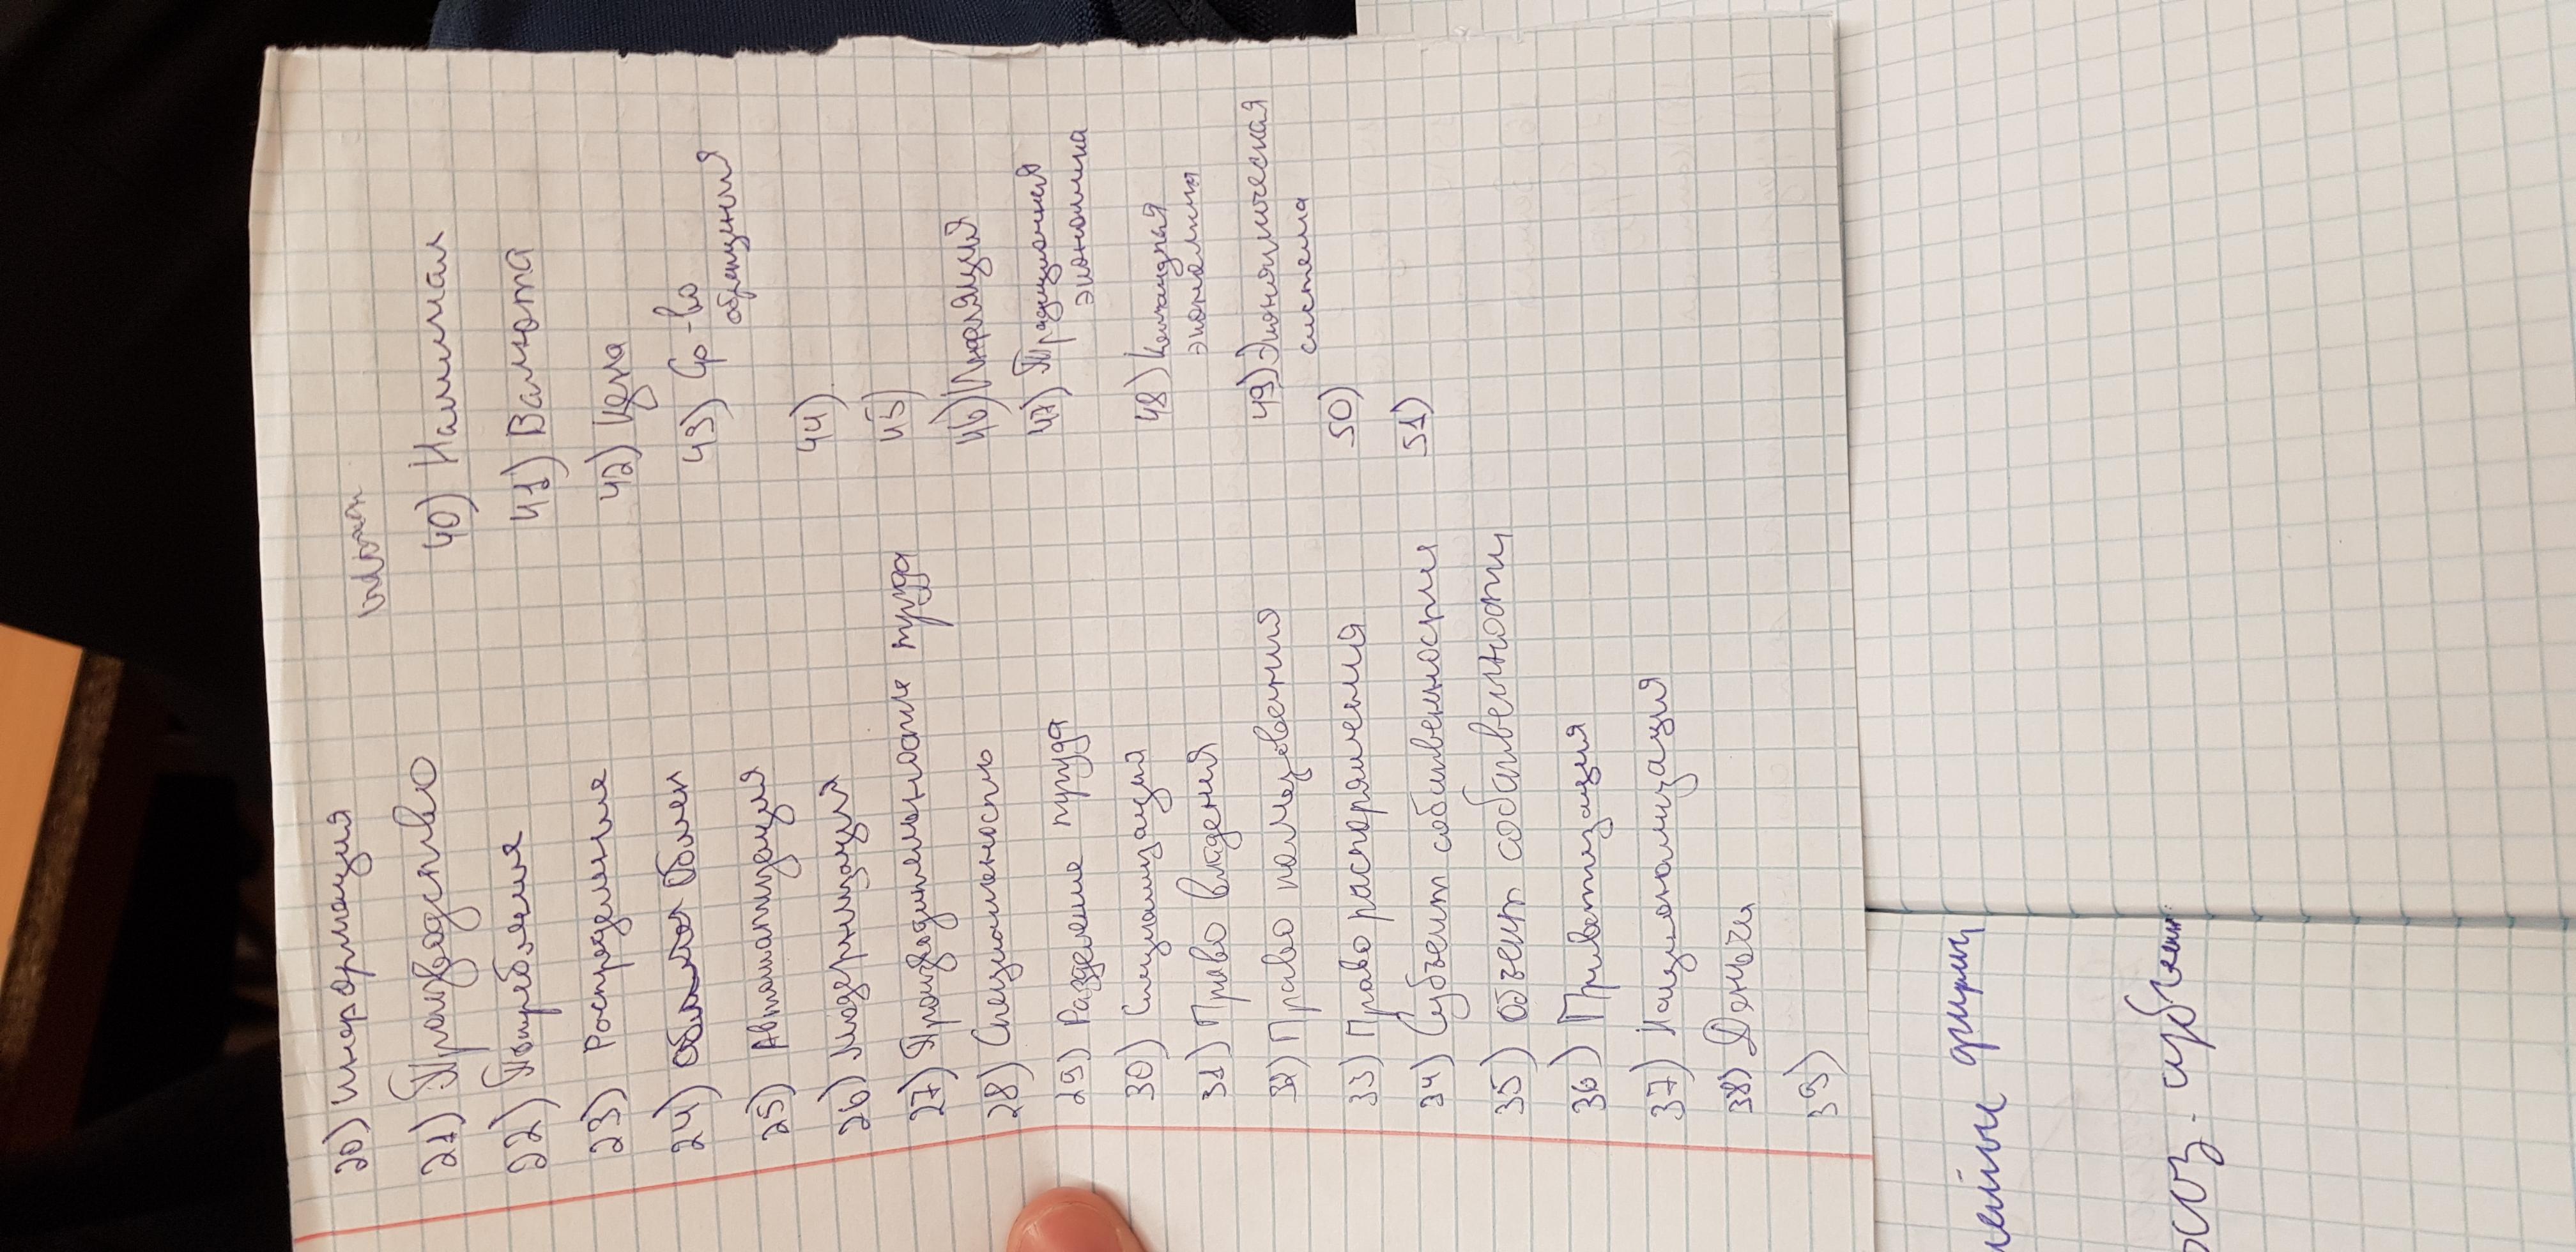 20) информация
21) Производство
22) Потребление
23) Распределение
24) Обмен
25) Автоматизация
26) Модернизация
27) Производительность труда
28) Специальность
29) Разделение труда
30) Специализация
31) Право владения
32) Право пользования
33) Право распоряжения
34) Субъект собственности
35) Объект собственности
36) Приватизация
37) Национализация
38) Деньги
39)
40) Номинал
41) Валюта
42) Цена
43) Ср-во
обращения
44)
45)
46) Инфляция
47) Традиционная
экономика
48) Командная
экономика
49) Экономическая
система
50)
51)